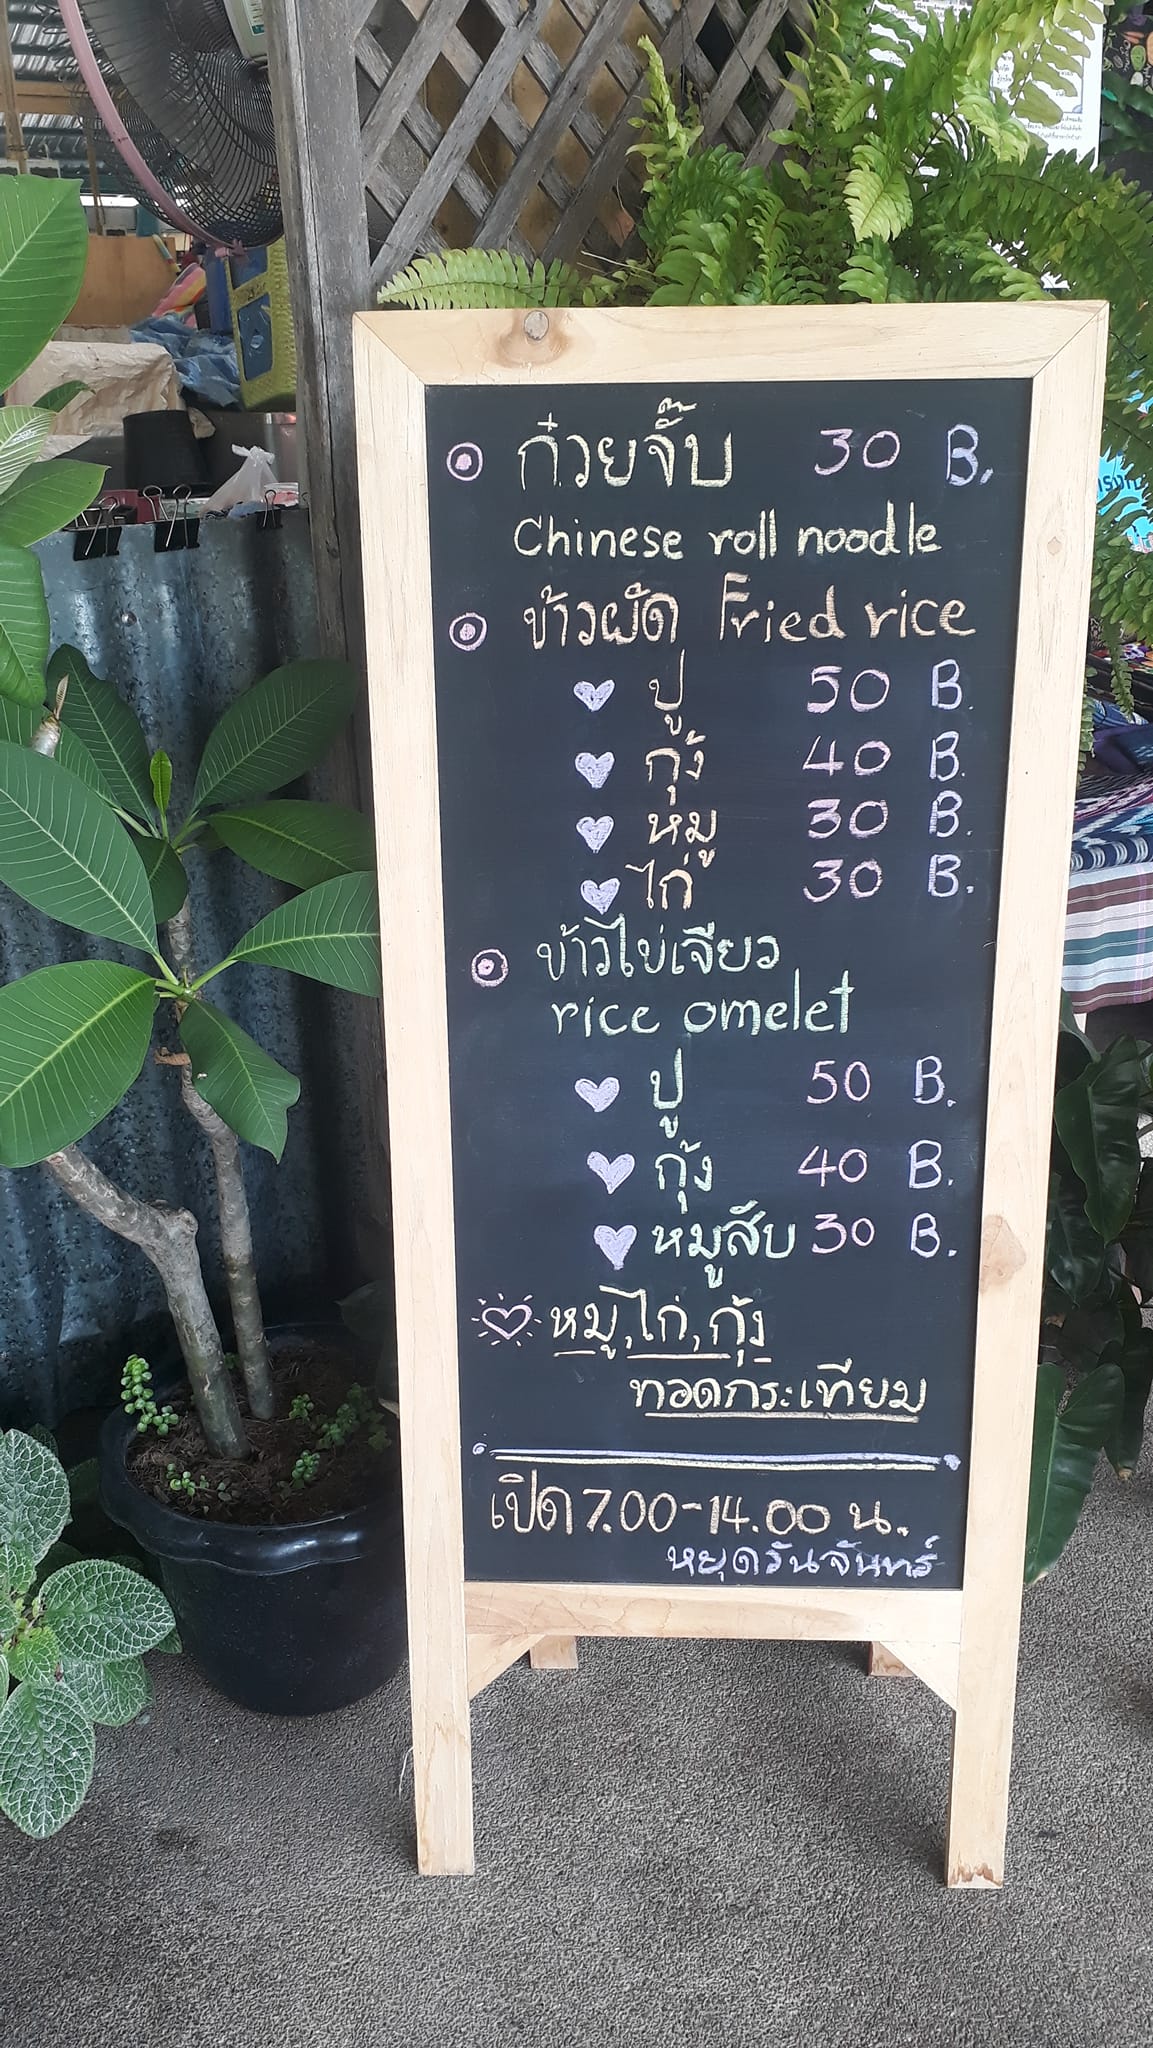 ก๋วยจั๊บ 30 B.
Chinese roll noodle
ข้าวผัด Fried rice
ปู 50 B.
กุ้ง 40 B.
หมู 30 B.
ไก่ 30 B.
ข้าวไข่เจียว
rice omelet
ปู 50 B.
กุ้ง 40 B.
หมูสับ 30 B.
หมู,ไก่,กุ้ง
ทอดกระเทียม
เปิด 7.00-14.00 น.
หยุดวันจันทร์